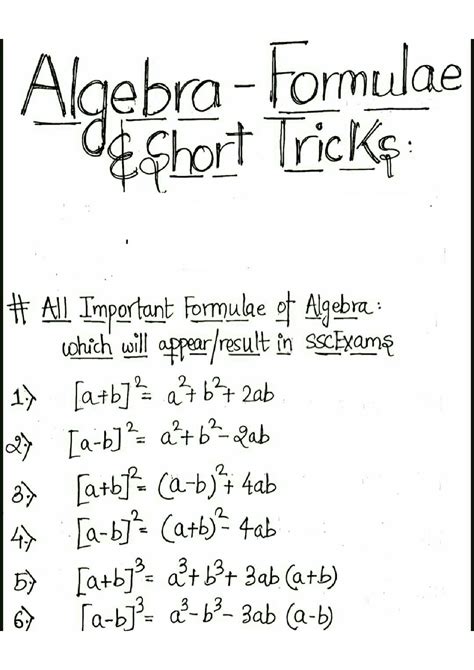 Algebra - Formulae
& Short Tricks:
# All Important Formulae of Algebra:
which will appear/result in SSCExams
1:) [a+b]²= a²+b²+2ab
2:) [a-b]²= a²+b²-2ab
3:) [a+b]²= (a-b)²+4ab
4:) [a-b]²= (a+b)²-4ab
5:) [a+b]³= a³+b³+3ab (a+b)
6:) [a-b]³= a³-b³-3ab (a-b)